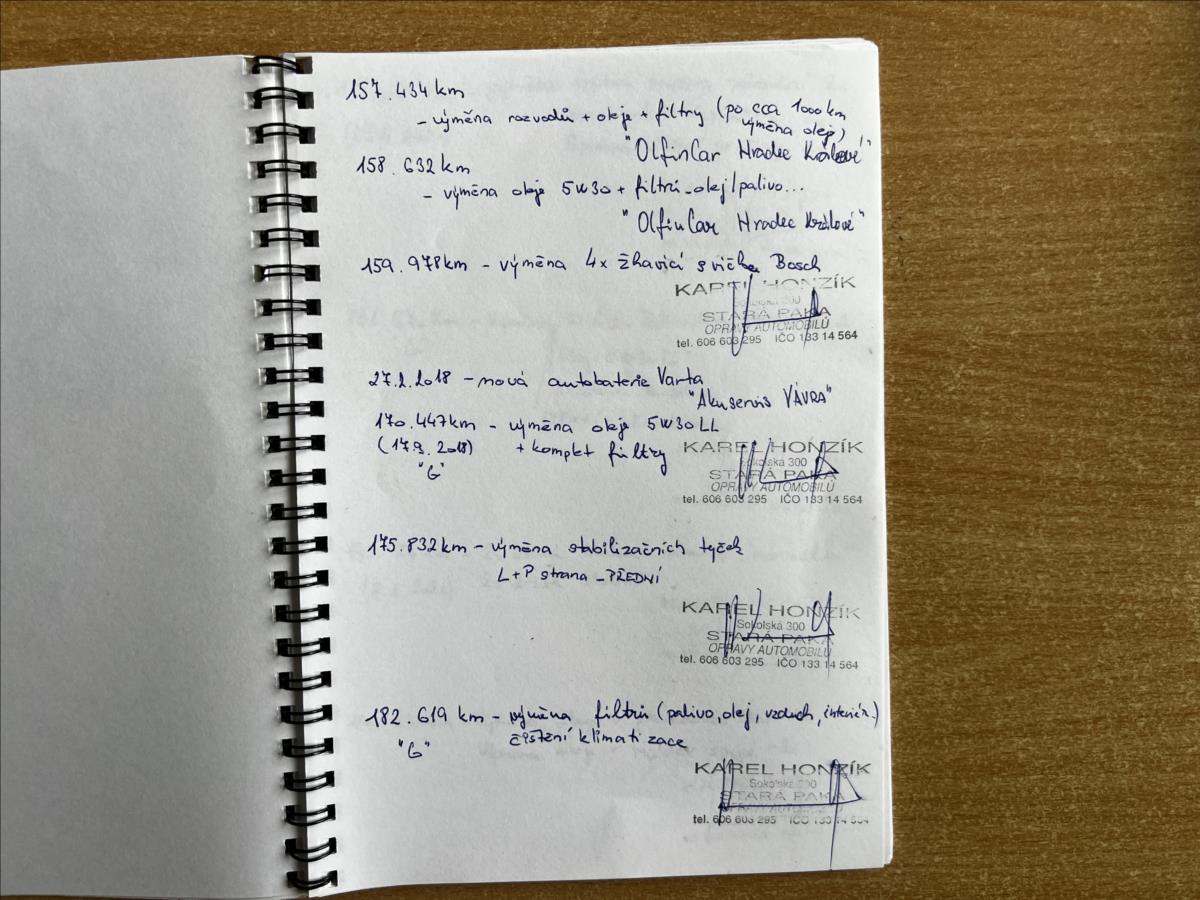 157.434 km
- výměna rozvodů + oleje + filtry (po cca 1000 km
výměna oleje)
"OlfinCar Hradec Králové"
158.632 km
- výměna oleje 5W30 + filtrů - olej/palivo...
"OlfinCar Hradec Králové"
159.978 km - výměna 4x žhavicí svíčka Bosch
KAREL HONZÍK
Sokolská 300
STARÁ PAKA
OPRAVY AUTOMOBILŮ
tel. 606 603 295 IČO 133 14 564
27.2.2018 - nová autobaterie Varta
"Akuservis VÁVRA"
170.447 km - výměna oleje 5W30 LL
(17.9. 2018) + komplet filtry
"G"
KAREL HONZÍK
Sokolská 300
STARÁ PAKA
OPRAVY AUTOMOBILŮ
tel. 606 603 295 IČO 133 14 564
175.832 km - výměna stabilizačních tyček
L+P strana - PŘEDNÍ
KAREL HONZÍK
Sokolská 300
STARÁ PAKA
OPRAVY AUTOMOBILŮ
tel. 606 603 295 IČO 133 14 564
182.619 km - výměna filtrů (palivo, olej, vzduch, interiér.)
"G" čištění klimatizace
KAREL HONZÍK
Sokolská 300
STARÁ PAKA
OPRAVY AUTOMOBILŮ
tel. 606 603 295 IČO 133 14 564